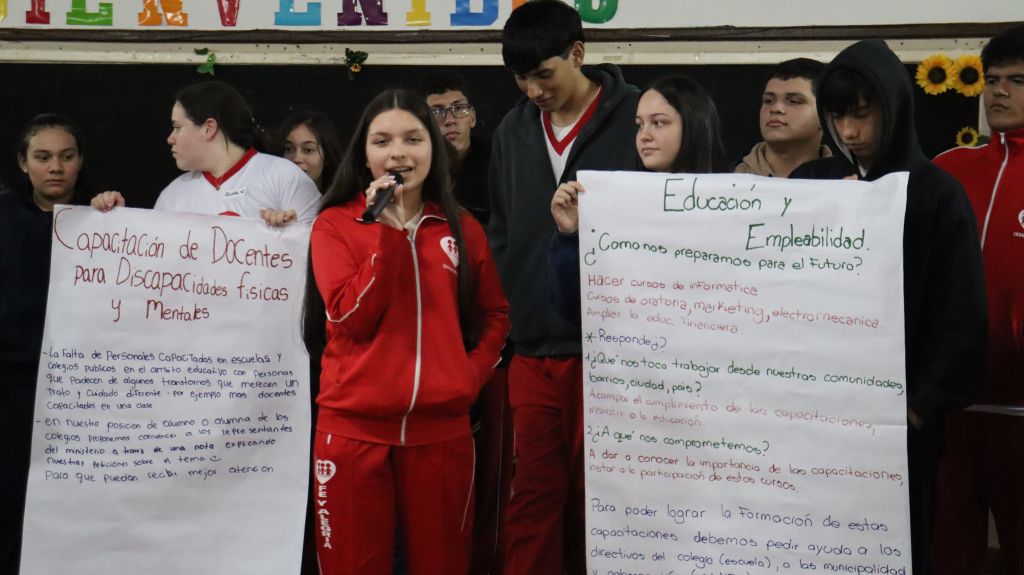 BIENVENIDOS
Capacitación de DOCentes
para Discapacidades físicas
y Mentales
- La Falta de Personales Capacitadas en escuelas y
colegios publicos en el ambito educativo con Personas
que Padecen de algunos transtornos que merecen un
Trato y Cuidado diferente. por ejemplo mas docentes
Capacitados en una clase
- en nuestra posicion de alumno o alumna de los
colegios proponemos convencer a los representantes
del ministerio a travez de una nota explicando
nuestras peticiones sobre el tema
Para que puedan recibir mejor atencion
FE Y ALEGRIA
Educación y
Empleabilidad.
¿Como nos preparamos para el Futuro?
Hacer cursos de informatica
Cursos de oratoria, marketing, electromecanica.
Ampliar la educ. Financiera.
* Responded?
1¿Qué nos toca trabajar desde nuestras comunidades,
barrios, ciudad, país?
Acompar el cumplimiento de las capacitaciones,
insistir a la educación.
2¿A qué nos comprometemos?
A dar a conocer la importancia de las capacitaciones,
instar a la participación de estos cursos.
Para poder lograr la Formación de estas
capacitaciones debemos pedir ayuda a los
directivos del colegio (escuela), a las municipalidad